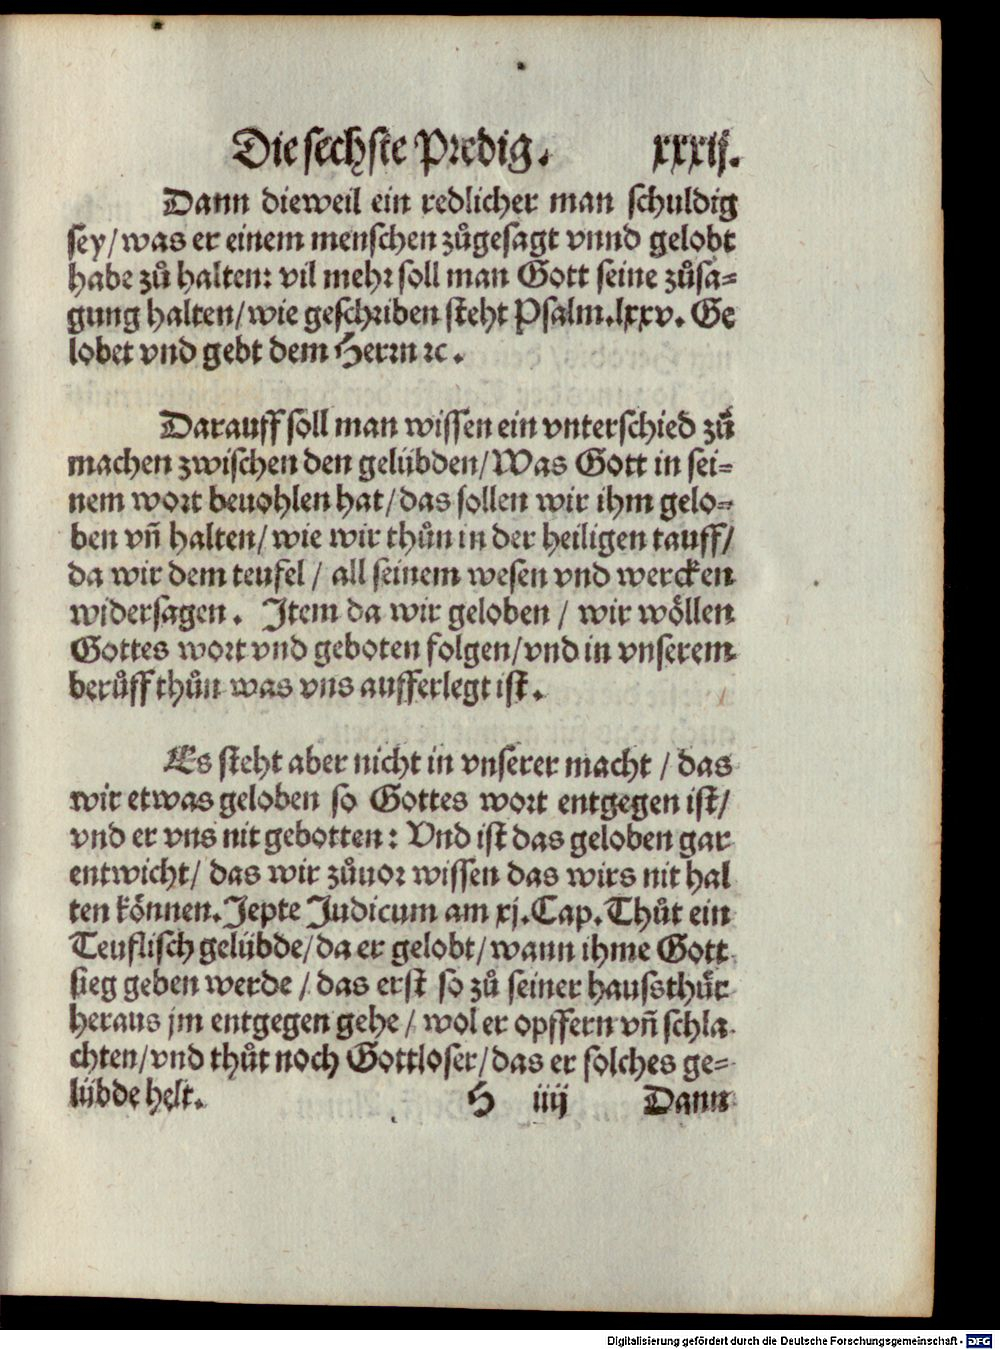 Die sechste Predig. xxxij.
Dann dieweil ein redlicher man schuldig
sey/was er einem menschen zůgesagt vnnd gelobt
habe zů halten: vil mehr soll man Gott seine zůsa=
gung halten/wie geschriben steht Psalm.lxxv. Ge
lobet vnd gebt dem Herrn ꝛc.
Darauff soll man wissen ein vnterschied zů
machen zwischen den gelübden/Was Gott in sei=
nem wort beuohlen hat/das sollen wir ihm gelo=
ben vñ halten/wie wir thůn in der heiligen tauff/
da wir dem teufel/ all seinem wesen vnd wercken
widersagen. Item da wir geloben / wir wöllen
Gottes wort vnd geboten folgen/vnd in vnserem
berůff thůn was vns aufferlegt ist.
Es steht aber nicht in vnserer macht / das
wir etwas geloben so Gottes wort entgegen ist/
vnd er vns nit gebotten: Vnd ist das geloben gar
entwicht/ das wir zůuor wissen das wirs nit hal
ten können. Jepte Judicum am xj.Cap.Thůt ein
Teuflisch gelübde/da er gelobt/wann ihme Gott
sieg geben werde / das erst so zů seiner haussthür
heraus jm entgegen gehe / wol er opffern vñ schla
chten/vnd thůt noch Gottloser/das er solches ge=
lübde helt. H iiij Dann
Digitalisierung gefördert durch die Deutsche Forschungsgemeinschaft - DFG